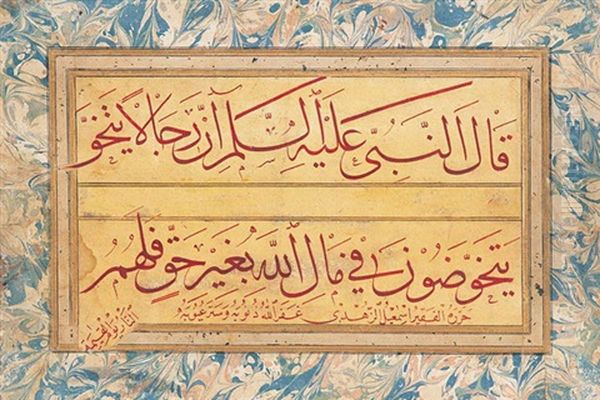 قال النبى عليه السلم ان رجالا يتخو
يتخوضون فى مال الله بغير حق فلهم
النار يوم القيمة
حرره الفقير اسمعيل الزهدى غفر الله ذنوبه وستر عيوبه